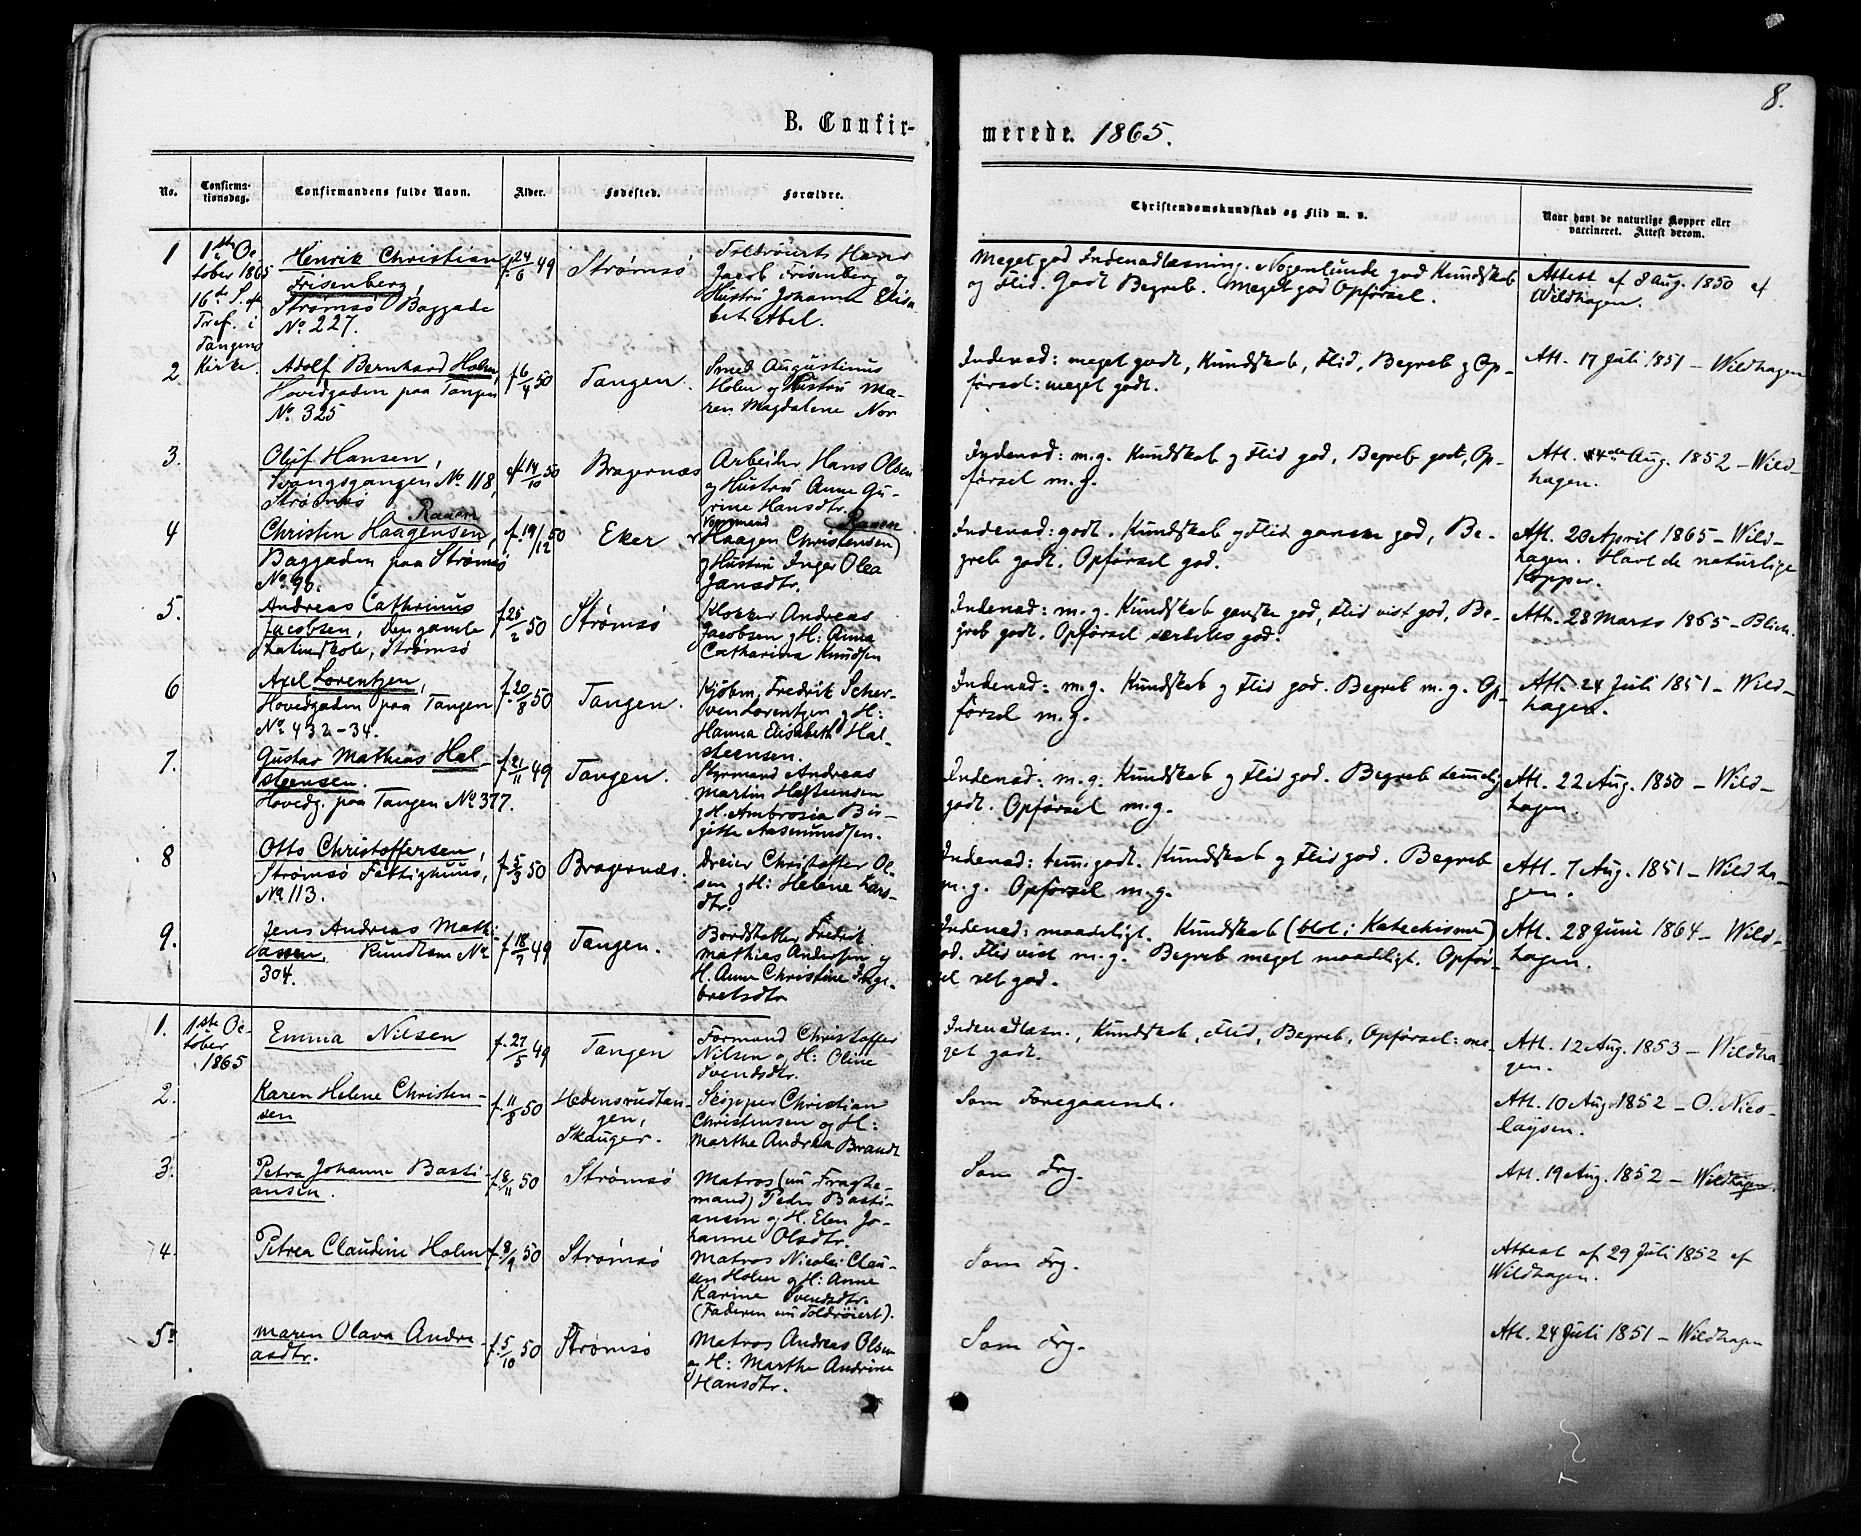 8.
B. Confir-
merede. 1865.
No.
Confirma-
tionsdag.
Confirmandens fulde Navn.
Alder.
Fødested.
Forældre.
Christendomskundskab og Flid m. v.
Naar havt de naturlige Kopper eller
vaccineret. Attest derom.
1
1ste Oc-
tober 1865
16de S. ef.
Tref. i
Tangens
Kirke.
Henrik Christian
Frisenberg,
Strømsø Baggade
No 227.
f. 24/6 49
Strømsø
Toldrøiert Hans
Jacob Frisenberg og
Hustru Johanne Elisa
bet Abel.
Meget god Indenadlæsning. Nogenlunde god Kundskab
og Flid. Godt Begreb. Meget god Opførsel.
Attest af 8 Aug. 1850 af
Wildhagen.
2
Adolf Bernhard Holm,
Hovedgaden paa Tangen
No 325
f. 6/4 50
Tangen.
Smed Augustinus
Holm og Hustru Ma-
ren Magdalene Nor
Indenad: meget godt, Kundskab, Flid, Begreb og Op-
førsel: meget godt.
Att. 17 Juli 1851 - Wildhagen
3.
Oluf Hansen,
Svangsgangen No 118,
Strømsø
f. 14/10 50
Bragernæs
Arbeider Hans Olsen
og Hustru Anne Gu-
rine Hansdtr.
Indenad: m.g. Kundskab og Flid god, Begreb godt, Op-
førsel m.g.
Att. 14de Aug. 1852 - Wild-
hagen.
4
Raaen
Christen Haagensen,
Baggaden paa Strømsø
No 90.
f. 19/12 50
Eker
Raaen
Haagen Christensen
og Hustru Inger Olea
Jansdtr.
Indenad: godt. Kundskab og Flid ganske god, Be-
greb godt. Opførsel god.
Att. 20 April 1865 - Wild-
hagen. Havt de naturlige
Kopper.
5.
Andreas Cathrinus
Jacobsen, den gamle
Latinskole, Strømsø
f. 25/2 50
Strømsø
Klokker Andreas
Jacobsen og H: Anna
Catharina Knudsen
Indenad: m.g. Kundskab ganske god, Flid vist god, Be-
greb godt. Opførsel særdeles god.
Att. 28 Marts 1865 - Blich.
6
Axel Lorentzen,
Hovedgaden paa Tangen
No 432-34.
f. 20/8 50
Tangen.
Kjøbm. Fredrik Scher-
ven Lorentzen og H:
Hanna Elisabeth Hal-
steensen.
Indenad: m.g. Kundskab og Flid god. Begreb m.g. Op-
førsel m.g.
Att. 24 Juli 1851 - Wild-
hagen.
7.
Gustav Mathias Hal-
steensen.
Hovedg. paa Tangen No 377.
f. 21/11 49
Tangen.
Styrmand Andreas
Martin Halsteensen
og H. Ambrosia Bir-
gitte Aasmundsen.
Indenad: m.g. Kundskab og Flid god. Begreb temmelig
godt. Opførsel m.g.
Att. 22 Aug. 1850 - Wild-
hagen.
8
Otto Christoffersen,
Strømsø Fattighuus,
No 113.
f. 5/3 50
Bragernæs.
Dreier Christoffer Ol-
sen og H: Helene Lars-
dtr.
Indenad: tem. godt. Kundskab og Flid god. Begreb
m.g. Opførsel m.g.
Att. 7 Aug. 1851 - Wildha-
gen.
9.
Jens Andreas Math-
iassen, Rundtom No
304.
f. 18/7 49
Tangen.
Bordstabler Fredrik
Mathias Andersen og
H. Anne Christine Inge-
bretsdtr
Indenad: maadeligt. Kundskab (blot i Katechisme)
god. Flid vist m.g. Begreb meget maadeligt. Opfør-
sel ret god.
Att. 28 Juni 1864 - Wild-
hagen.
1.
1ste Oc-
tober
1865
Emma Nilsen
f. 27/5 49
Tangen
Formand Christoffer
Nilsen og H: Oline
Svendsdtr.
Indenadlæsn., Kundskab, Flid, Begreb, Opførsel: me-
get godt.
Att. 12 Aug. 1853 - Wildha-
gen.
2.
Karen Helene Christen-
sen
f. 11/8 50
Hedensrudtan-
gen,
Skauger.
Skipper Christian
Christensen og H:
Marthe Andrea Brandt
Som Foregaaende.
Att. 10 Aug. 1852 - O. Nico-
laysen.
3.
Petra Johanne Basti-
ansen.
f. 8/11 50
Strømsø
Matros (nu Fragte-
mand) Peder Basti-
ansen og H. Elen Jo-
hanne Olsdtr.
Som Frg.
Att. 19 Aug. 1852 - Wildhagen.
4.
Petrea Claudine Holm
f. 8/9 50
Strømsø
Matros Nicolai Clau-
sen Holm og H: Anne
Karine Svendsdtr.
(Faderen nu Toldrøiert).
Som Frg.
Attest af 29 Juli 1852 af
Wildhagen.
5.
Maren Olava Andre
asdtr.
f. 5/10 50
Strømsø
Matros Andreas Olsen
og H: Marthe Andrine
Hansdtr.
Som Frg.
Att. 24 Juli 1851 - Wildhagen